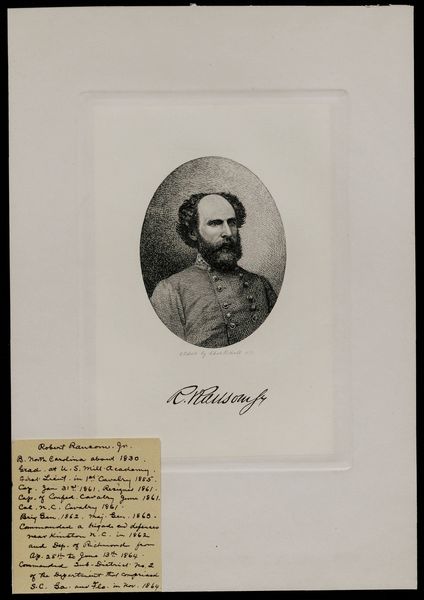 Etched by
R. Ransom Jr
Robert Ransom. Jr.
B. North Carolina about 1830.
Grad. at U.S. Mill. Academy.
First Lieut. in 1st Cavalry 1855.
Cap. Jan 31st 1861. Resigned 1861.
Cap. of Confed. Cavalry June 1861.
Col. N.C. Cavalry 1861.
Brig Gen. 1862. Maj. Gen. 1863.
Commanded a brigade and defences
near Kinston N.C. in 1862
and Dep. of Richmond from
Ap. 25th to June 13th 1864.
Commanded Sub-District No. 2
of the Department that comprised
S.C. Ga. and Fla. in Nov. 1864